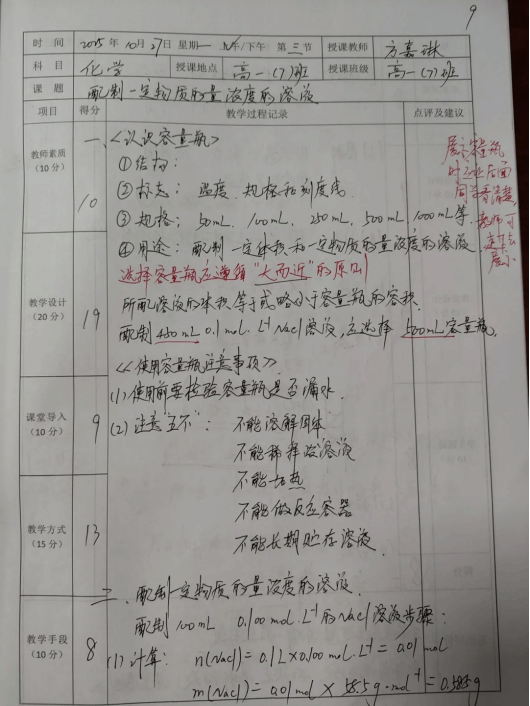 9
时 间 2025年10月27日 星期一 上午/下午 第三节 授课教师 方嘉琳
科 目 化学 授课地点 高一(7)班 授课班级 高一(7)班
课 题 配制一定物质的量浓度的溶液
项目 得分 教学过程记录 点评及建议
教师素质
(10分)
10
一、<认识容量瓶>
①结构:
②标志: 温度、规格和刻度线
③规格: 50mL、100mL、250mL、500mL、1000mL等
④用途: 配制一定体积和一定物质的量浓度的溶液
选择容量瓶应遵循"大而近"的原则
展示容量瓶
时
后面
同学看清楚
教师可
展示
教学设计
(20分)
19
所配溶液的体积等于或略小于容量瓶的容积
配制450mL 0.1mol·L⁻¹NaCl溶液,应选择500mL容量瓶.
<<使用容量瓶注意事项>>
(1)使用前要检验容量瓶是否漏水.
课堂导入
(10分)
9
(2)注意"五不": 不能溶解固体
不能稀释浓溶液
不能加热
不能做反应容器
不能长期贮存溶液
教学方式
(15分)
13
二、配制一定物质的量浓度的溶液
配制100mL 0.100mol·L⁻¹的NaCl溶液步骤:
教学手段
(10分)
8
(1)计算: n(NaCl)=0.1L×0.100mol·L⁻¹=0.01mol
m(NaCl)=0.01mol×58.5g·mol⁻¹=0.585g